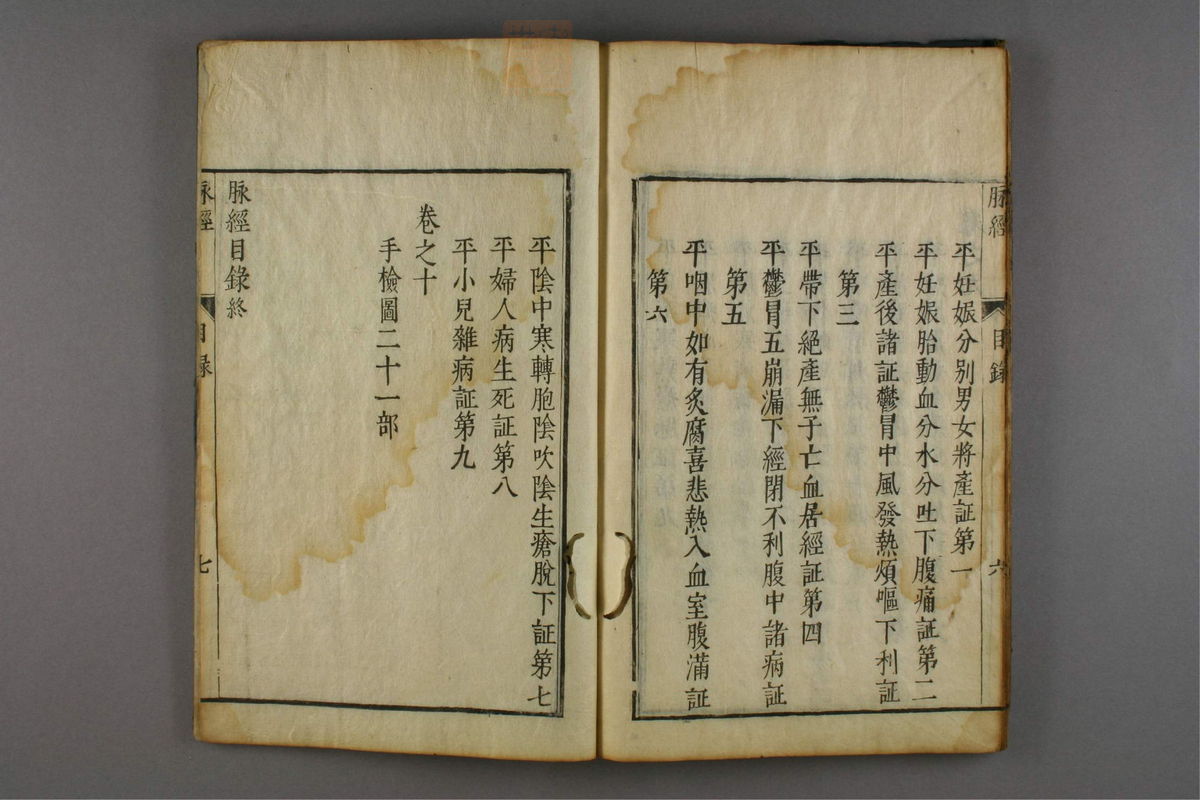 脉經
目錄
六
平妊娠分别男女將產証第一
平妊娠胎動血分水分吐下腹痛証第二
平產後諸証鬱冒中風發熱煩嘔下利証
第三
平帶下絕產無子亡血居經証第四
平鬱冒五崩漏下經閉不利腹中諸病証
第五
平咽中如有炙腐喜悲熱入血室腹滿証
第六
平陰中寒轉胞陰吹陰生瘡脫下証第七
平婦人病生死証第八
平小兒雜病証第九
卷之十
手檢圖二十一部
脉經目錄終
脉經
目錄
七